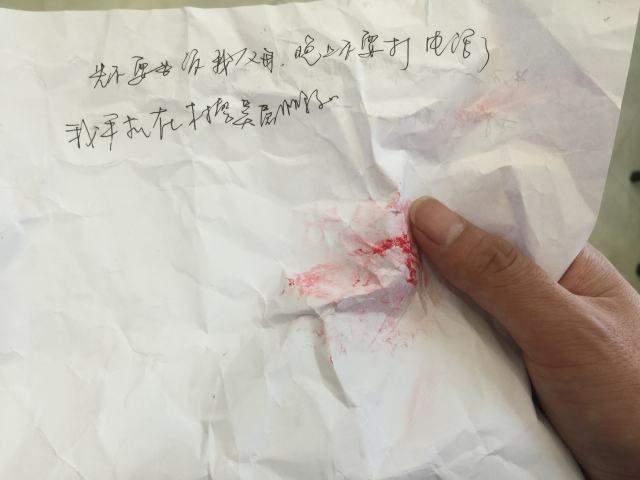 先不要告诉我父母.晚上不要打电话了
我手机在